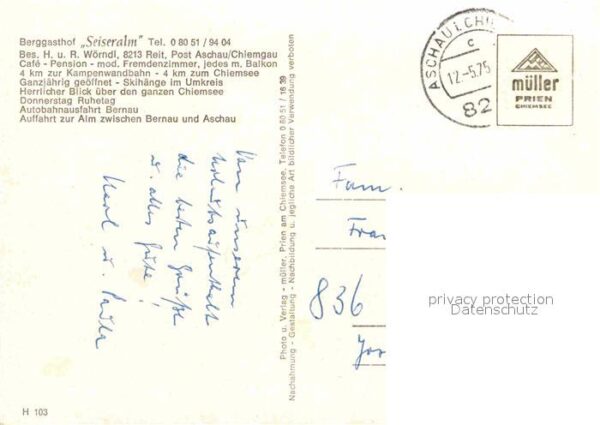 Berggasthof „Seiseralm" Tel. 0 80 51 / 94 04
Bes. H. u. R. Wörndl, 8213 Reit, Post Aschau/Chiemgau
Café - Pension - mod. Fremdenzimmer, jedes m. Balkon
4 km zur Kampenwandbahn - 4 km zum Chiemsee
Ganzjährig geöffnet - Skihänge im Umkreis
Herrlicher Blick über den ganzen Chiemsee
Donnerstag Ruhetag
Autobahnausfahrt Bernau
Auffahrt zur Alm zwischen Bernau und Aschau
Von unserem
Urlaubsaufenthalt
die besten Grüße
u. alles Gute!
Karl u. Paula
Photo u. Verlag - müller, Prien am Chiemsee, Telefon 0 80 51 / 16 39
Nachahmung - Gestaltung - Nachbildung u. jegliche Art bildlicher Verwendung verboten
ASCHAU I. CH
c
12.-5.75
82
müller
PRIEN
CHIEMSEE
Fam.
836
privacy protection
Datenschutz
H 103